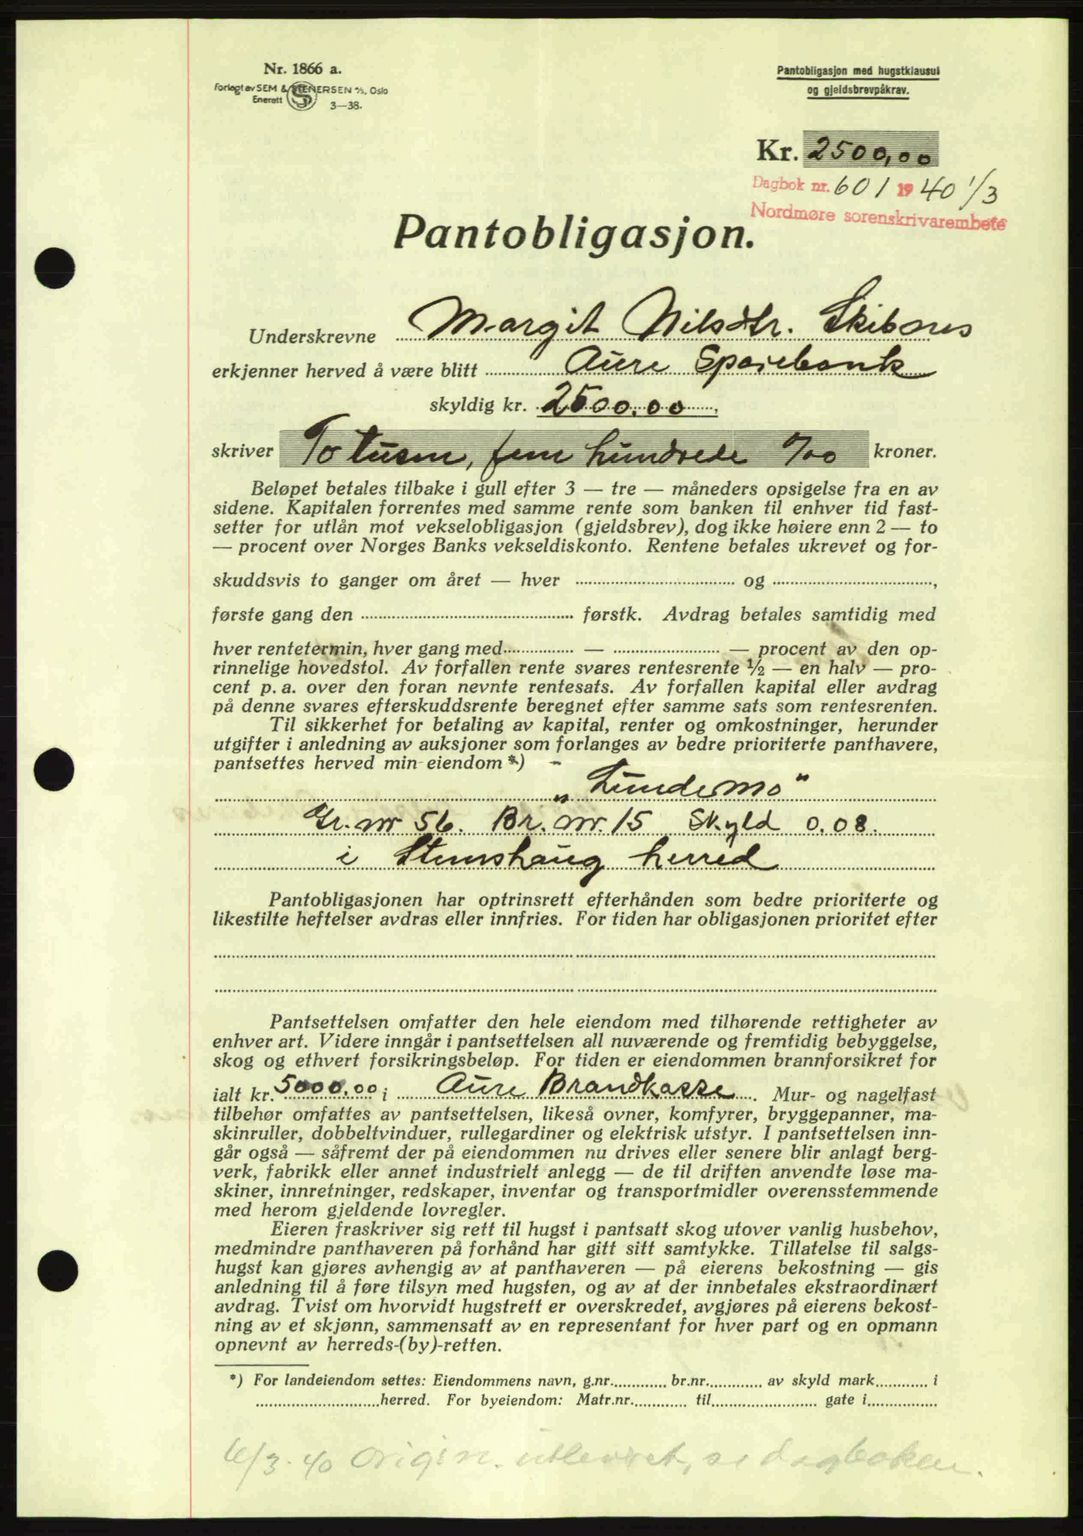 Nr. 1866 a.
Forlagt av SEM & STENERSEN A/S, Oslo
Enerett
3—38.
Pantobligasjon med hugstklausul
og gjeldsbrevpåkrav.
Kr. 2500,00
Dagbok nr. 601 1940 1/3
Nordmøre sorenskrivarembete
Pantobligasjon.
Underskrevne Margit Nilsdtr. Skibnes
erkjenner herved å være blitt Aure Sparebank
skyldig kr. 2500.00
skriver To tusen, fem hundrede 0/00 kroner.
Beløpet betales tilbake i gull efter 3 — tre — måneders opsigelse fra en av
sidene. Kapitalen forrentes med samme rente som banken til enhver tid fast-
setter for utlån mot vekselobligasjon (gjeldsbrev), dog ikke høiere enn 2 — to
— procent over Norges Banks vekseldiskonto. Rentene betales ukrevet og for-
skuddsvis to ganger om året — hver ............ og ............,
første gang den ............ førstk. Avdrag betales samtidig med
hver rentetermin, hver gang med ............ — ............ — procent av den op-
rinnelige hovedstol. Av forfallen rente svares rentesrente ½ — en halv — pro-
cent p. a. over den foran nevnte rentesats. Av forfallen kapital eller avdrag
på denne svares efterskuddsrente beregnet efter samme sats som rentesrenten.
Til sikkerhet for betaling av kapital, renter og omkostninger, herunder
utgifter i anledning av auksjoner som forlanges av bedre prioriterte panthavere,
pantsettes herved min eiendom *) -
„Lundemo"
Gr. nr 56. Br. nr. 15 Skyld 0.08.
i Stemshaug herred
Pantobligasjonen har optrinsrett efterhånden som bedre prioriterte og
likestilte heftelser avdras eller innfries. For tiden har obligasjonen prioritet efter
Pantsettelsen omfatter den hele eiendom med tilhørende rettigheter av
enhver art. Videre inngår i pantsettelsen all nuværende og fremtidig bebyggelse,
skog og ethvert forsikringsbeløp. For tiden er eiendommen brannforsikret for
ialt kr. 5000.00 i Aure Brandkasse. Mur- og nagelfast
tilbehør omfattes av pantsettelsen, likeså ovner, komfyrer, bryggepanner, ma-
skinruller, dobbeltvinduer, rullegardiner og elektrisk utstyr. I pantsettelsen inn-
går også — såfremt der på eiendommen nu drives eller senere blir anlagt berg-
verk, fabrikk eller annet industrielt anlegg — de til driften anvendte løse ma-
skiner, innretninger, redskaper, inventar og transportmidler overensstemmende
med herom gjeldende lovregler.
Eieren fraskriver sig rett til hugst i pantsatt skog utover vanlig husbehov,
medmindre panthaveren på forhånd har gitt sitt samtykke. Tillatelse til salgs-
hugst kan gjøres avhengig av at panthaveren — på eierens bekostning — gis
anledning til å føre tilsyn med hugsten, og av at der innbetales ekstraordinært
avdrag. Tvist om hvorvidt hugstrett er overskredet, avgjøres på eierens bekost-
ning av et skjønn, sammensatt av en representant for hver part og en opmann
opnevnt av herreds-(by)-retten.
*) For landeiendom settes: Eiendommens navn, g.nr............ br.nr............ av skyld mark........... i
............herred. For byeiendom: Matr.nr............ til............ gate i............
6/3.40 origin. utleveret, se dagboken.